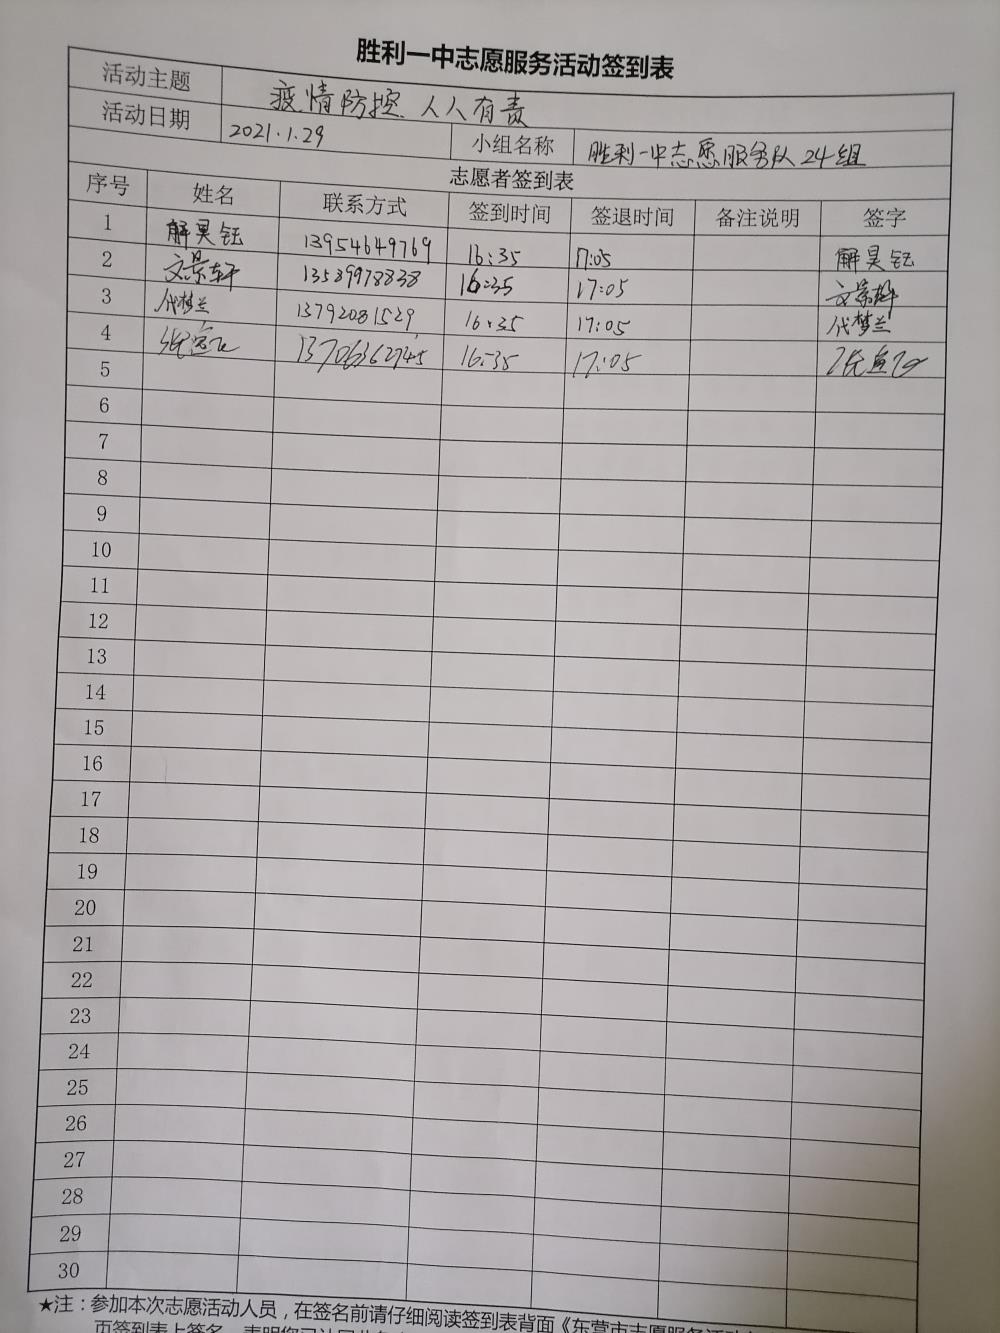 胜利一中志愿服务活动签到表
活动主题 疫情防控 人人有责
活动日期 2021.1.29 小组名称 胜利一中志愿服务队24组
志愿者签到表
序号 姓名 联系方式 签到时间 签退时间 备注说明 签字
1 解昊钰 13954649769 16:35 17:05 解昊钰
2 文景轩 13589978838 16:35 17:05 文景轩
3 代梦兰 13792081529 16:35 17:05 代梦兰
4 13706362745 16:35 17:05
5
6
7
8
9
10
11
12
13
14
15
16
17
18
19
20
21
22
23
24
25
26
27
28
29
30
★注：参加本次志愿活动人员，在签名前请仔细阅读签到表背面《东营市志愿服务活动
页签到表上签名，表明您已认同